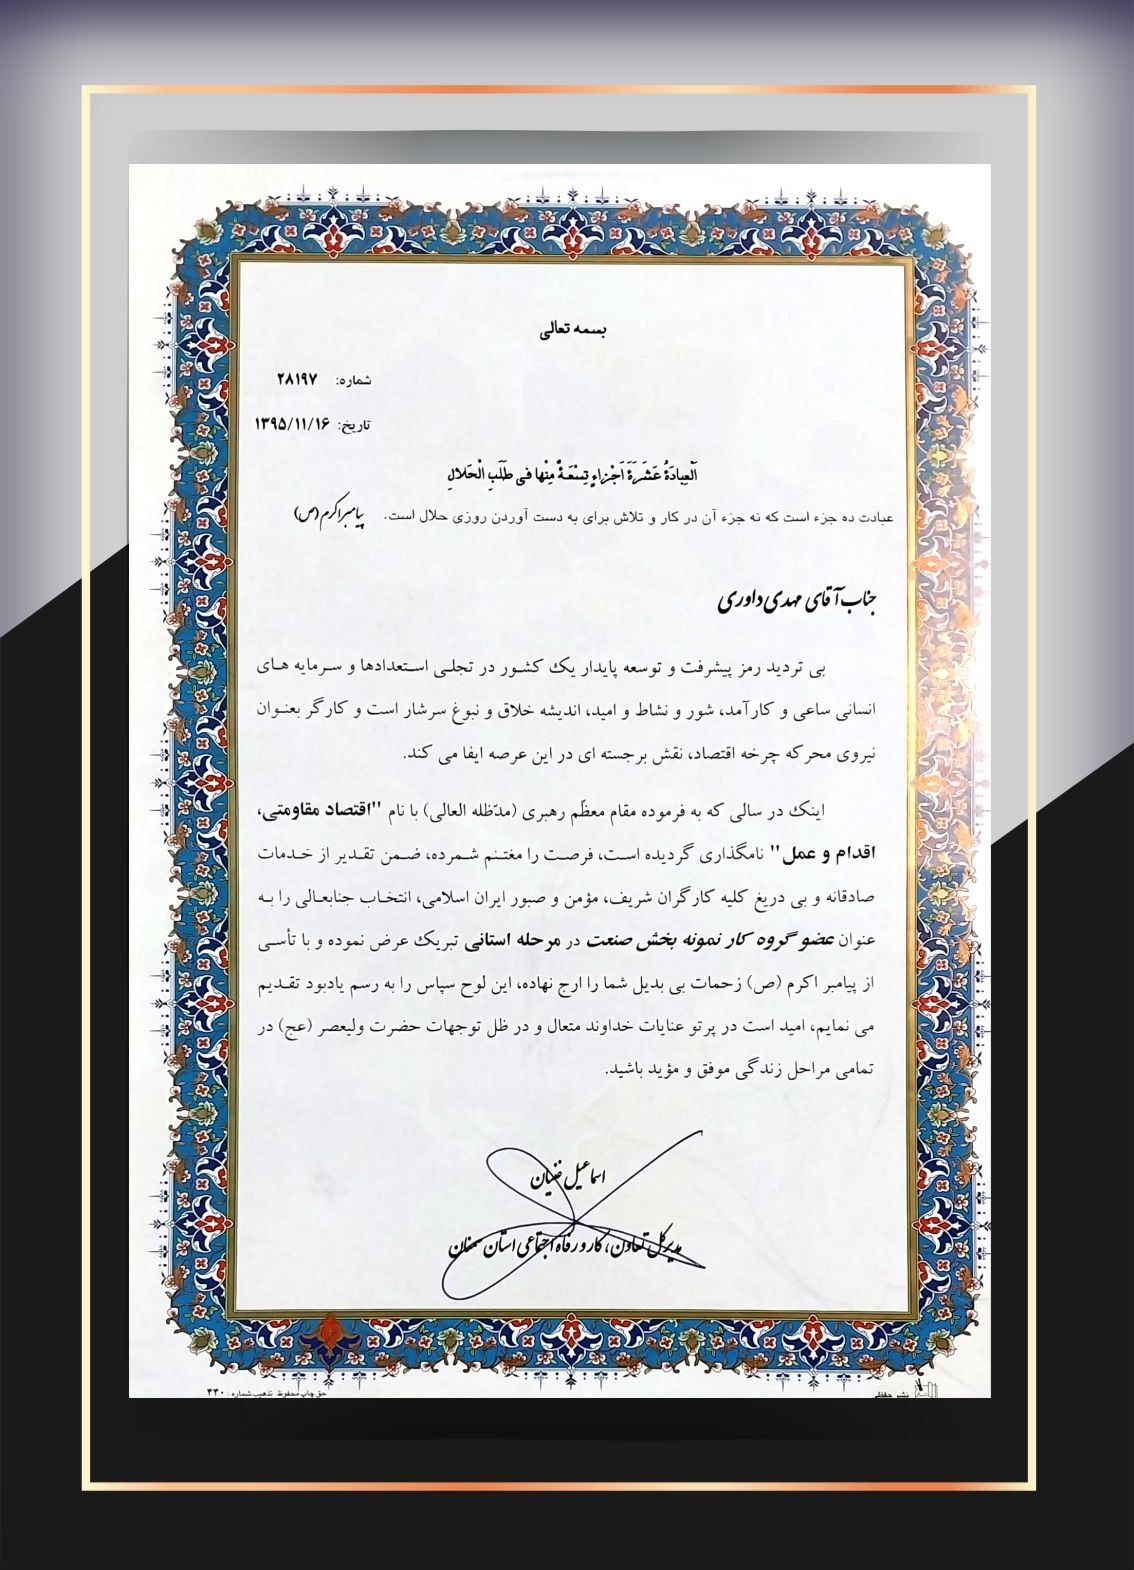 بسمه تعالی
شماره: ۲۸۱۹۷
تاریخ: ۱۳۹۵/۱۱/۱۶
اَلْعِبادَةُ عَشَرَةَ اَجْزاءٍ تِسْعَةٌ مِنْها فی طَلَبِ الْحَلالِ
عبادت ده جزء است که نه جزء آن در کار و تلاش برای به دست آوردن روزی حلال است. پیامبر اکرم (ص)
جناب آقای مهدی داوری
بی تردید رمز پیشرفت و توسعه پایدار یک کشور در تجلی استعدادها و سرمایه های
انسانی ساعی و کارآمد، شور و نشاط و امید، اندیشه خلاق و نبوغ سرشار است و کارگر بعنوان
نیروی محرکه چرخه اقتصاد، نقش برجسته ای در این عرصه ایفا می کند.
اینک در سالی که به فرموده مقام معظّم رهبری (مدّظله العالی) با نام "اقتصاد مقاومتی،
اقدام و عمل" نامگذاری گردیده است، فرصت را مغتنم شمرده، ضمن تقدیر از خدمات
صادقانه و بی دریغ کلیه کارگران شریف، مؤمن و صبور ایران اسلامی، انتخاب جنابعالی را به
عنوان عضو گروه کار نمونه بخش صنعت در مرحله استانی تبریک عرض نموده و با تأسی
از پیامبر اکرم (ص) زحمات بی بدیل شما را ارج نهاده، این لوح سپاس را به رسم یادبود تقدیم
می نمایم، امید است در پرتو عنایات خداوند متعال و در ظل توجهات حضرت ولیعصر (عج) در
تمامی مراحل زندگی موفق و مؤید باشید.
اسماعیل غنیان
مدیرکل تعاون، کار و رفاه اجتماعی استان سمنان
حق چاپ محفوظ تذهیب شماره : ۴۴۰
نشر حفظی